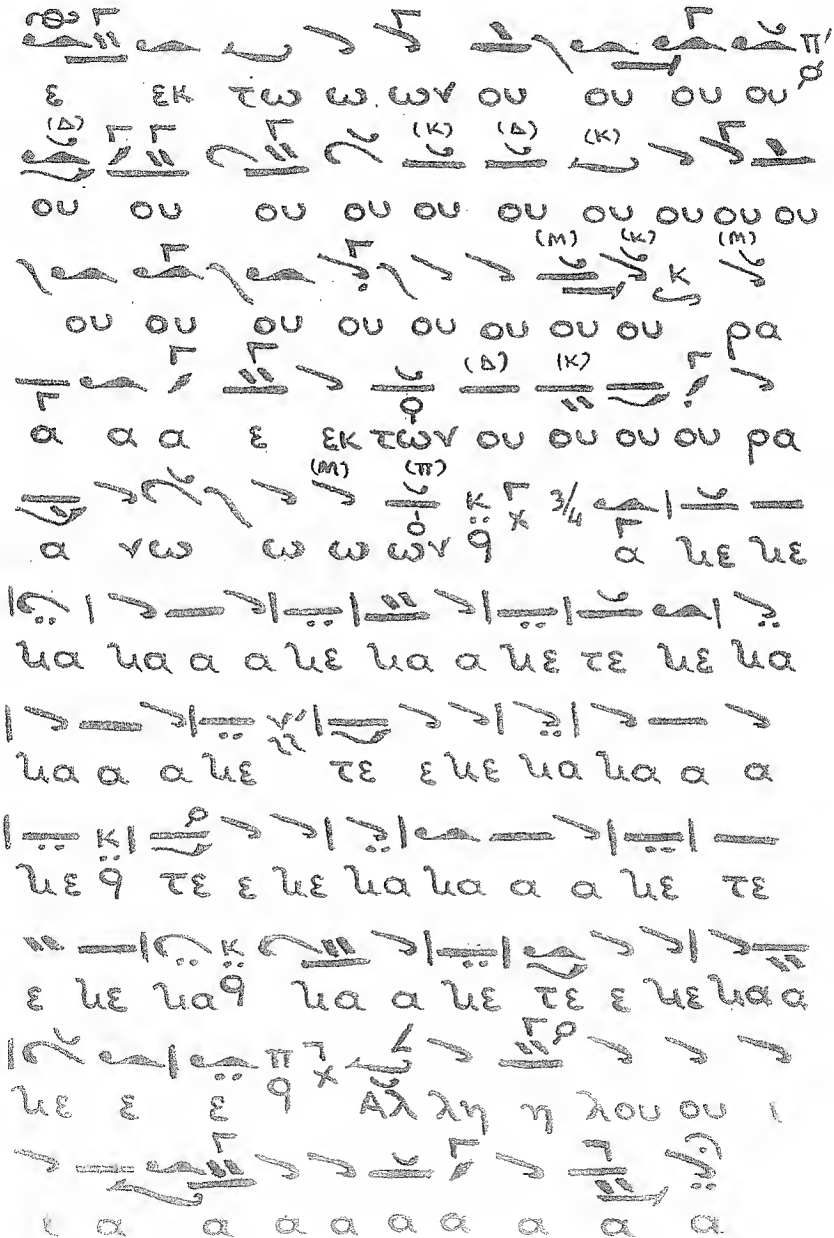 π'
ε εκ τω ω ων ου ου ου ου
(Δ) (κ) (Δ) (κ)
ου ου ου ου ου ου ου ου ου ου
(Μ) (κ) κ (Μ)
ου ου ου ου ου ου ου ου ρα
(Δ) (κ)
α α α ε εκ των ου ου ου ου ρα
(Μ) (π) κ 3/4
α νω ω ω ων α κε κε
κα κα α α κε κα α κε τε κε κα
ν'
κα α α κε τε ε κε κα κα α α
κ
κε τε ε κε κα κα α α κε τε
κ
ε κε κα κα α κε τε ε κε κα α
π
κε ε ε Αλ λη η λου ου ι
ι α α α α α α α α α